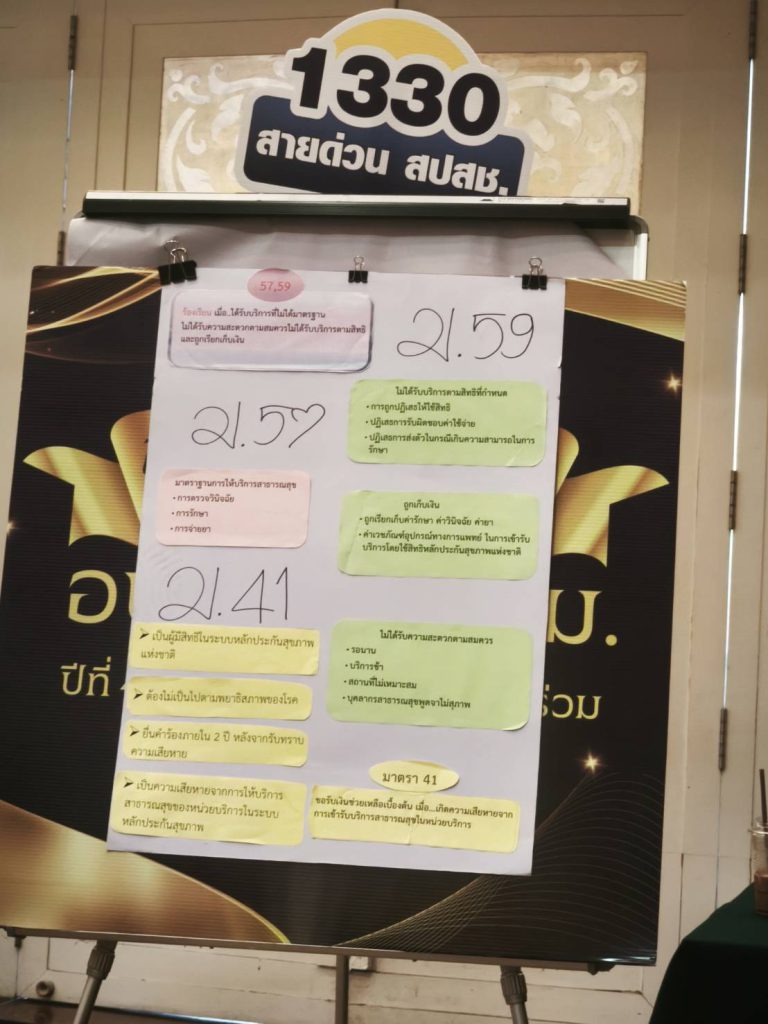 1330
สายด่วน สปสช.
57,59
ร้องเรียน เมื่อ..ได้รับบริการที่ไม่ได้มาตรฐาน
ไม่ได้รับความสะดวกตามสมควรไม่ได้รับบริการตามสิทธิ
และถูกเรียกเก็บเงิน
ม.59
ไม่ได้รับบริการตามสิทธิที่กำหนด
• การถูกปฏิเสธให้ใช้สิทธิ
• ปฏิเสธการรับผิดชอบค่าใช้จ่าย
• ปฏิเสธการส่งตัวในกรณีเกินความสามารถในการ
รักษา
ม.57
มาตราฐานการให้บริการสาธารณสุข
• การตรวจวินิจฉัย
• การรักษา
• การจ่ายยา
ถูกเก็บเงิน
• ถูกเรียกเก็บค่ารักษา ค่าวินิจฉัย ค่ายา
• ค่าเวชภัณฑ์อุปกรณ์ทางการแพทย์ ในการเข้ารับ
บริการโดยใช้สิทธิหลักประกันสุขภาพแห่งชาติ
ม.41
➢ เป็นผู้มีสิทธิในระบบหลักประกันสุขภาพ
แห่งชาติ
➢ ต้องไม่เป็นไปตามพยาธิสภาพของโรค
➢ ยื่นคำร้องภายใน 2 ปี หลังจากรับทราบ
ความเสียหาย
➢ เป็นความเสียหายจากการให้บริการ
สาธารณสุขของหน่วยบริการในระบบ
หลักประกันสุขภาพ
ไม่ได้รับความสะดวกตามสมควร
• รอนาน
• บริการช้า
• สถานที่ไม่เหมาะสม
• บุคลากรสาธารณสุขพูดจาไม่สุภาพ
มาตรา 41
ขอรับเงินช่วยเหลือเบื้องต้น เมื่อ...เกิดความเสียหายจาก
การเข้ารับบริการสาธารณสุขในหน่วยบริการ
ม.
ปีที่
ร่วม